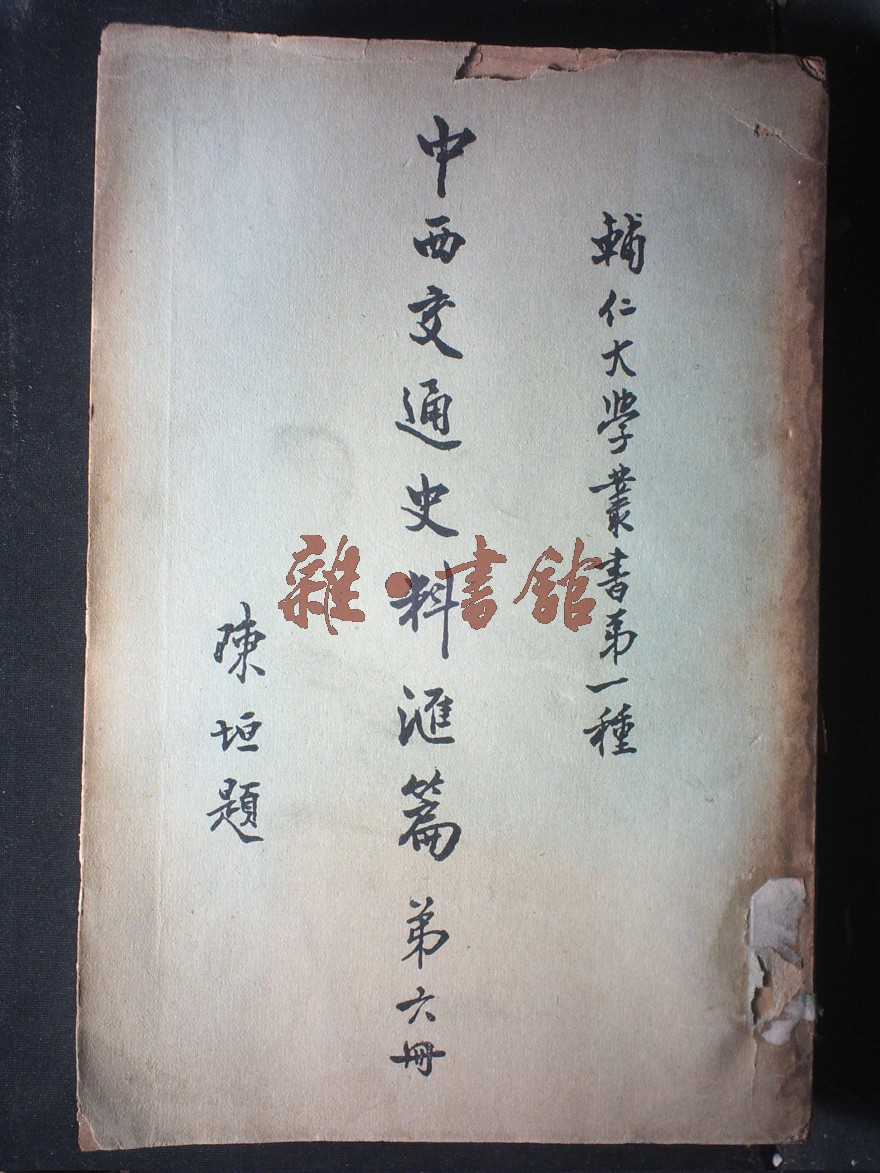 輔仁大學叢書第一種
中西交通史料滙篇第六冊
陳垣題
雜·書館